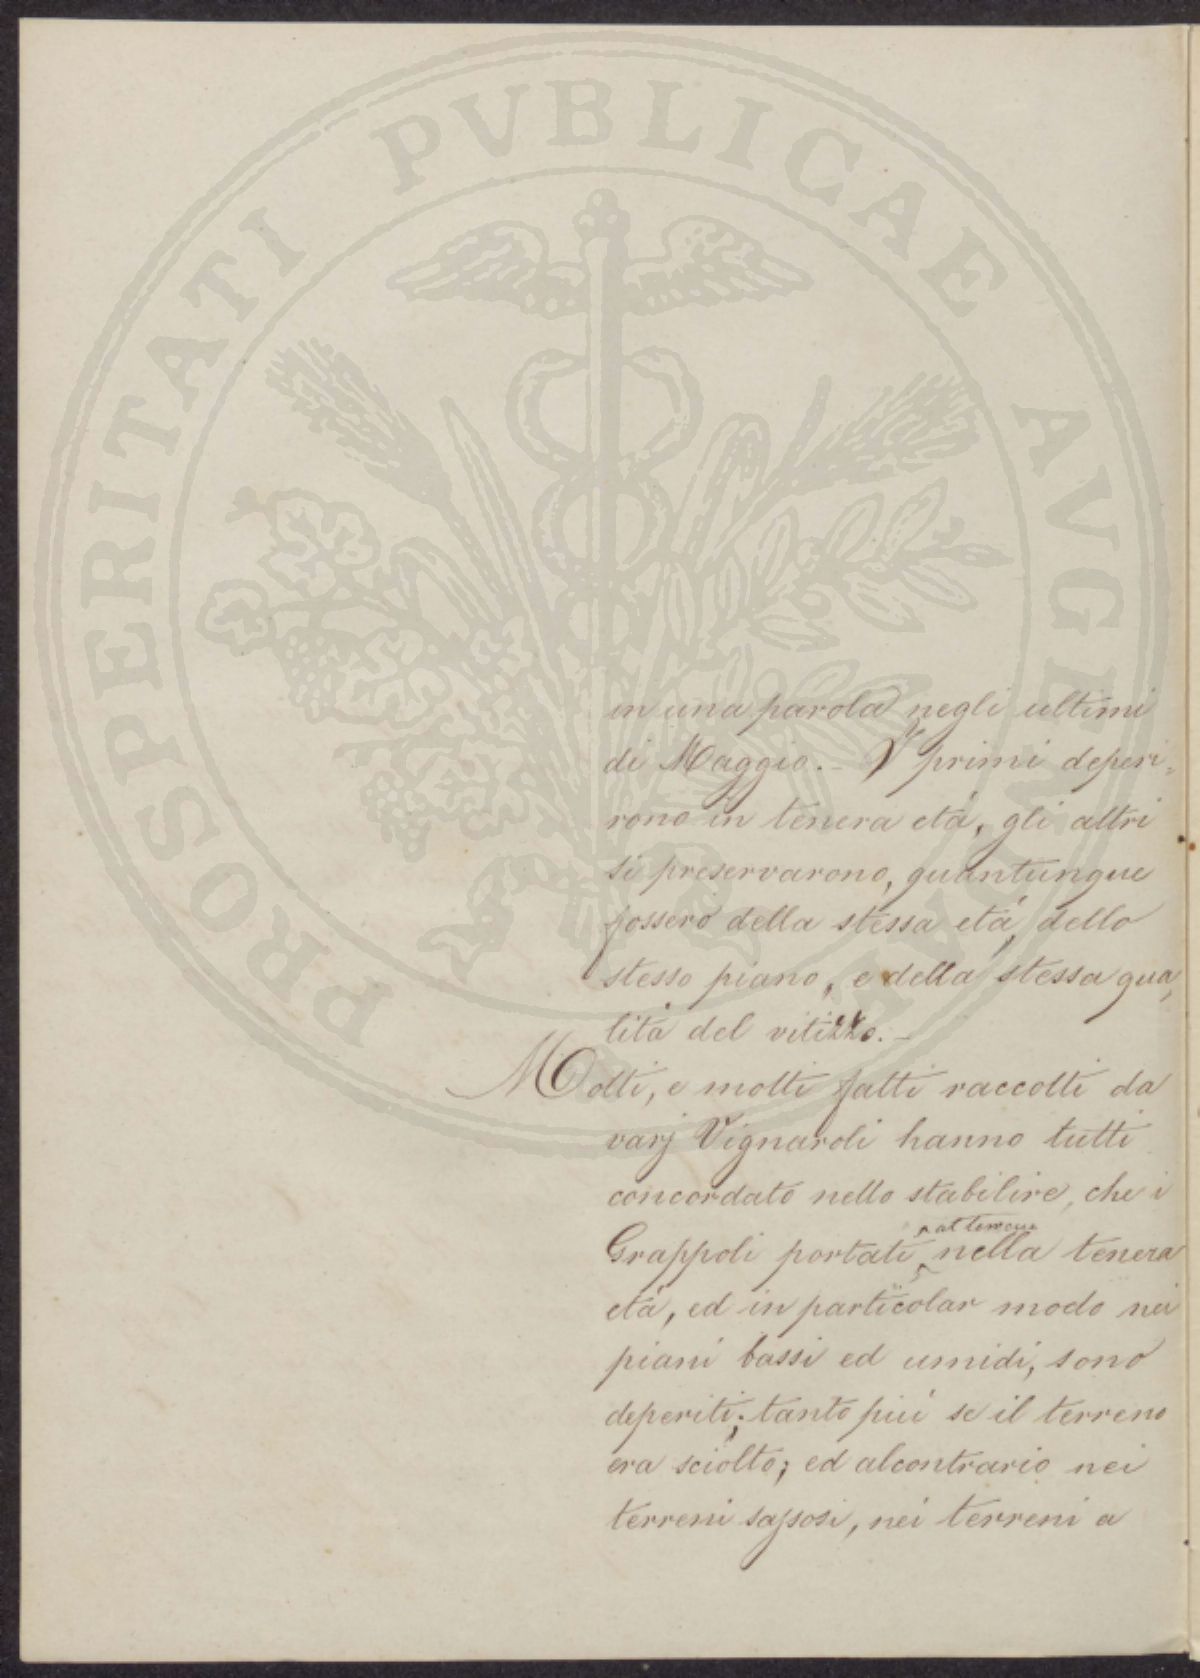 PROSPERITATI PVBLICAE AVGENDAE
in una parola negli ultimi
di Maggio. – I primi deperi-
rono in tenera età, gli altri
si preservarono, quantunque
fossero della stessa età, dello
stesso piano, e della stessa qua-
lità del vitizzo. –
Molti, e molti fatti raccolti da
varj Vignaroli hanno tutti
concordato nello stabilire, che i
Grappoli portati nella tenera
età, ed in particolar modo nei
piani bassi ed umidi, sono
deperiti; tanto più se il terreno
era sciolto; ed alcontrario nei
terreni sassosi, nei terreni a